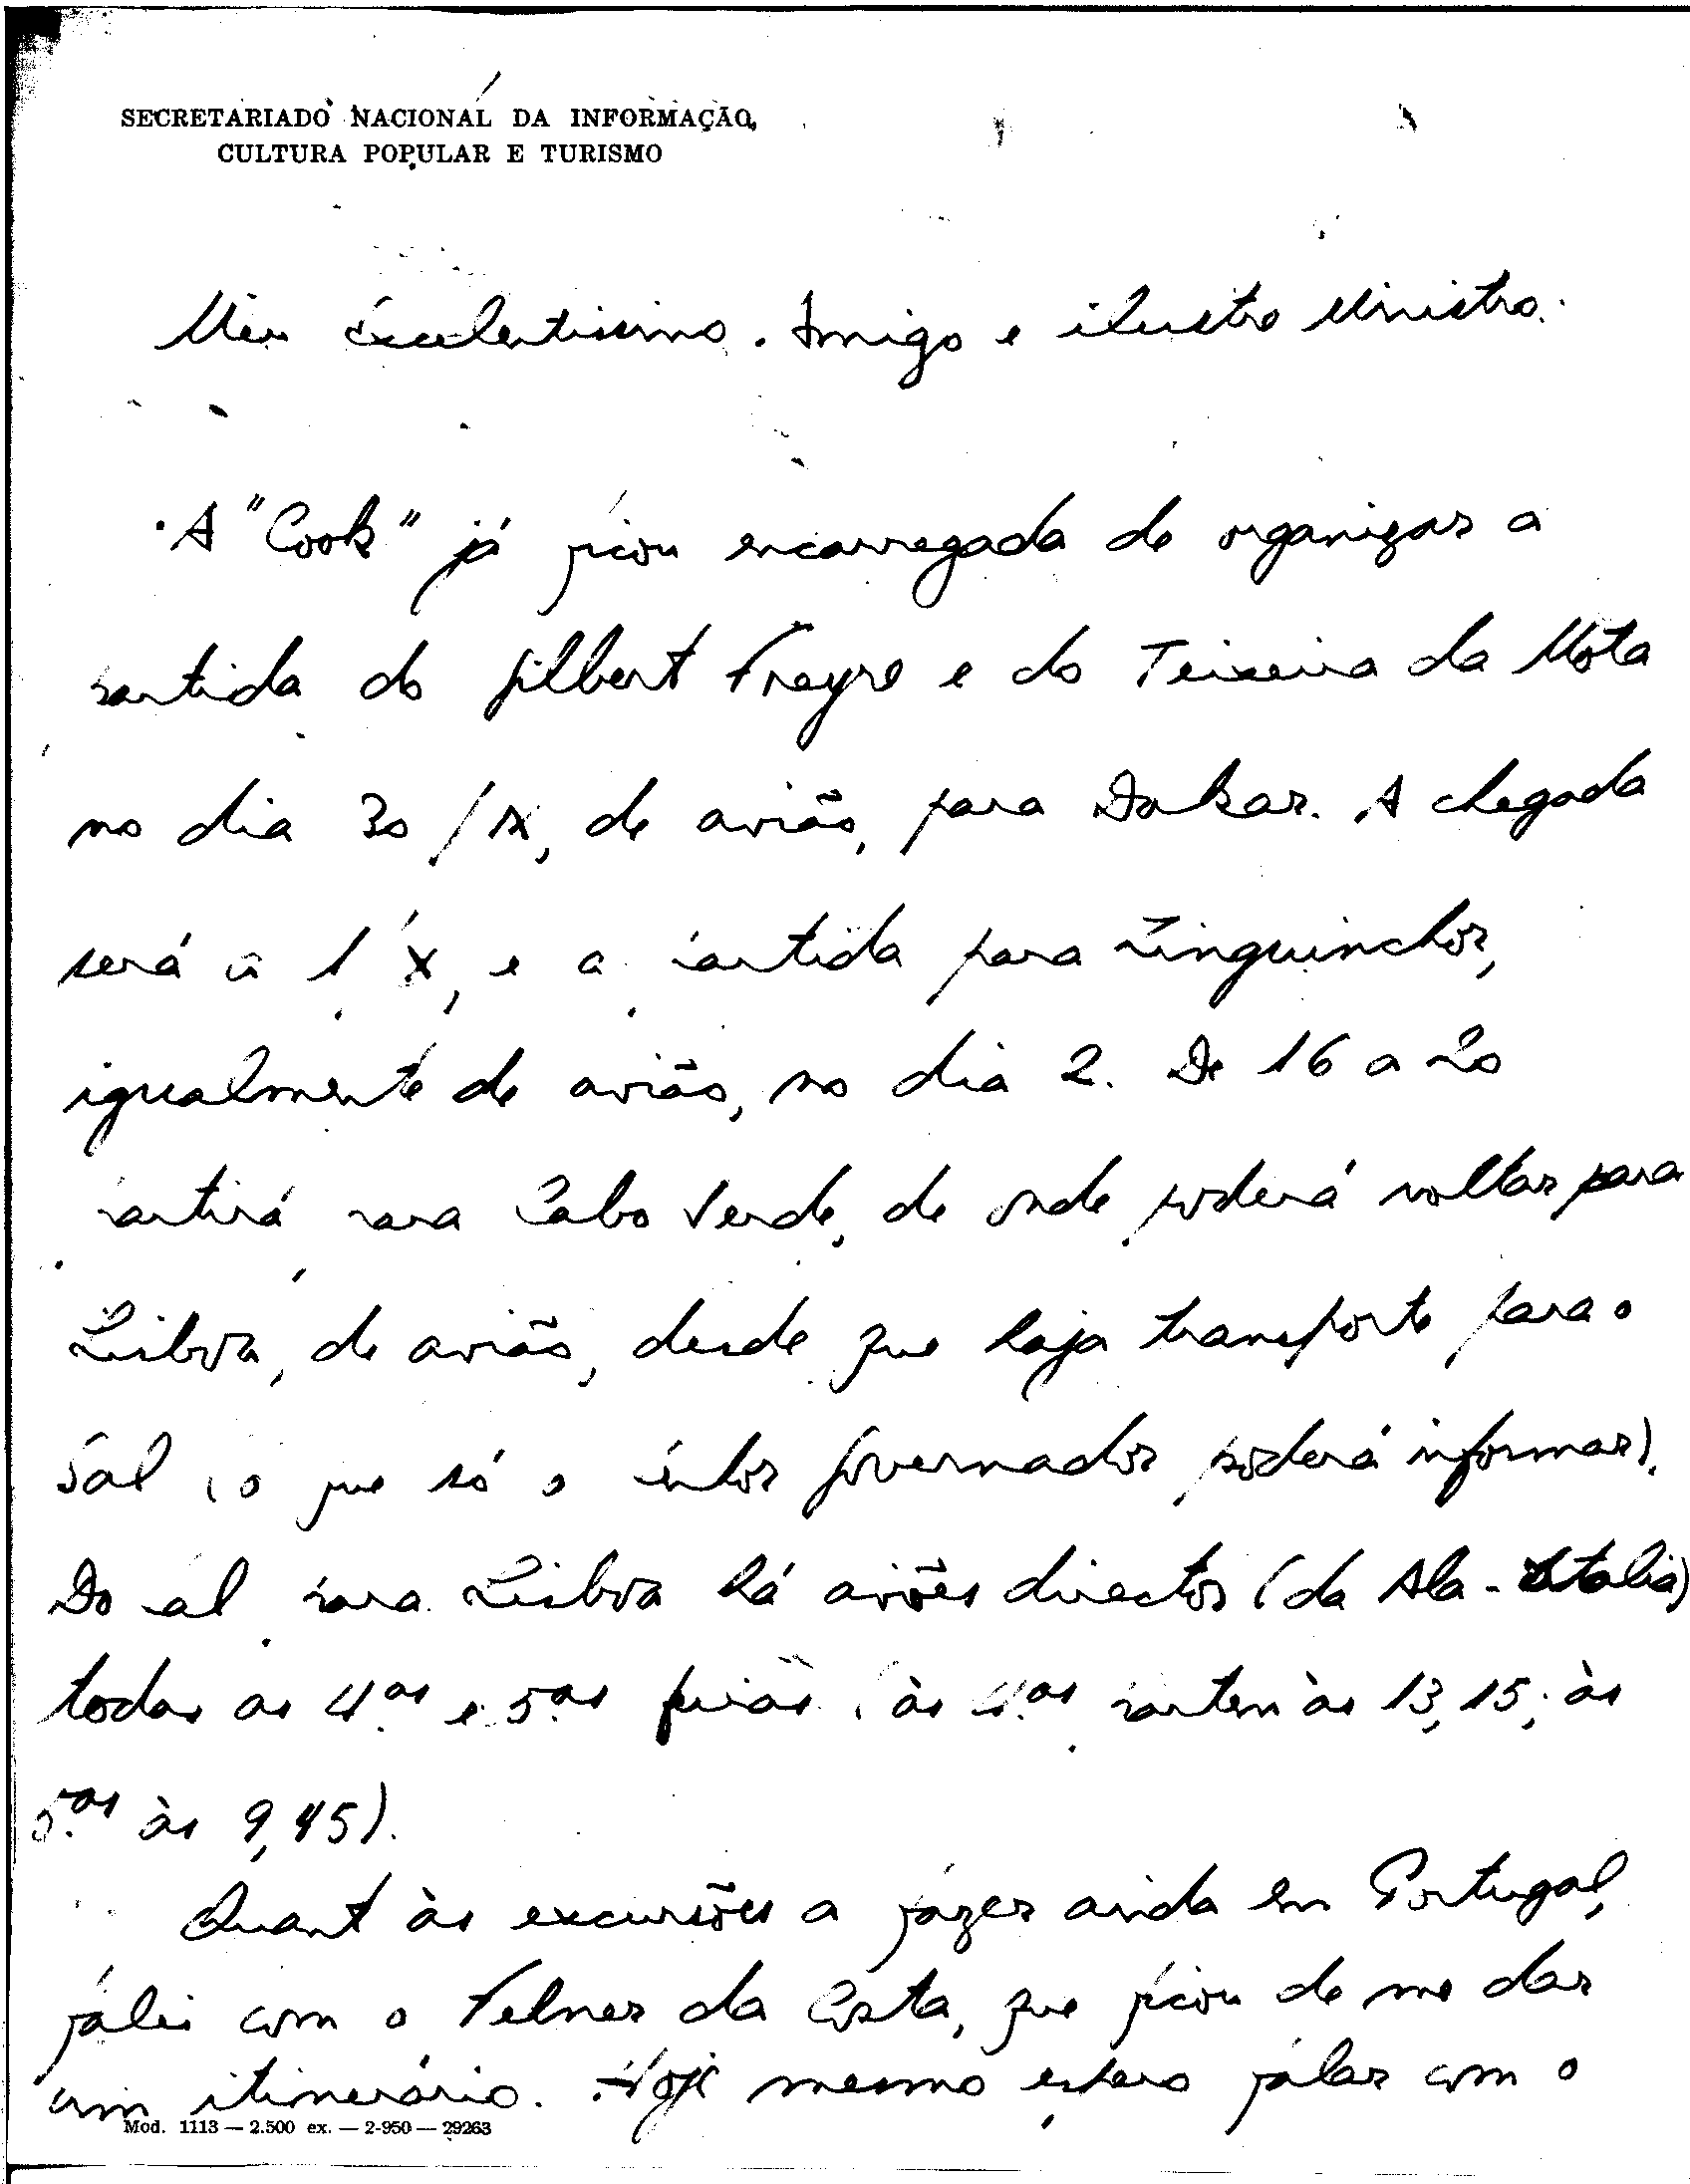 SECRETARIADO NACIONAL DA INFORMAÇÃO,
CULTURA POPULAR E TURISMO
Meu Excelentissimo Amigo e ilustre Ministro:
A "Cook" já ficou encarregada de organizar a
partida do Gilbert Freyre e do Teixeira da Mota
no dia 30/IX, de avião, para Dakar. A chegada
será a 1/X, e a partida para Zinguinchor,
igualmente de avião, no dia 2. De 16 a 20
partirá para Cabo Verde, de onde poderá voltar para
Lisboa, de avião, desde que haja transporte para o
Sal (o que só o senhor Governador poderá informar).
Do Sal para Lisboa há aviões directos (da Ala-Italia)
todas as 4.as e 5.as feiras (às 4.as partem às 13,15; às
5.as às 9,45).
Quant às excursões a fazer ainda em Portugal,
falei com o Felner da Costa, que ficou de me dar
um itinerário. Hoje mesmo espero falar com o
Mod. 1113 — 2.500 ex. — 2-950 — 29263